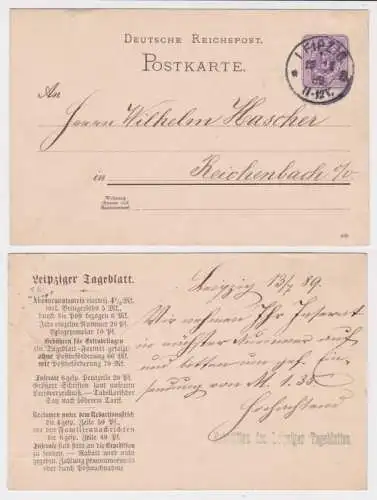 Deutsche Reichspost.
Postkarte.
LEIPZIG
11-12V.
An
Herrn Wilhelm Hascher
in
Reichenbach i/V.
Wohnung
Leipziger Tageblatt.
Abonnementspreis viertelj. 4½ Mk.
incl. Bringerlohn 5 Mk.
durch die Post bezogen 6 Mk.
Jede einzelne Nummer 20 Pf.
Belegexemplar 10 Pf.
Gebühren für Extrabeilagen
(in Tageblatt-Format gefalzt)
ohne Postbeförderung 60 Mk.
mit Postbeförderung 70 Mk.
Inserate 6gesp. Petitzeile 20 Pf.
Größere Schriften laut unserem
Preisverzeichniß. — Tabellarischer
Satz nach höherem Tarif.
Reclamen unter dem Redactionsstrich
die 4gesp. Zeile 50 Pf., vor
den Familiennachrichten
die 6gesp. Zeile 40 Pf.
Inserate sind stets an die Expedition
zu senden. — Rabatt wird nicht
gegeben. Zahlung praenumerando
oder durch Postnachnahme.
Leipzig 13/7 89.
Wir nehmen Ihr Inserat
in nächster Nummer auf
und bitten um gef. Ein-
sendung von M. 1.35
Hochachtend
Expedition des Leipziger Tageblattes